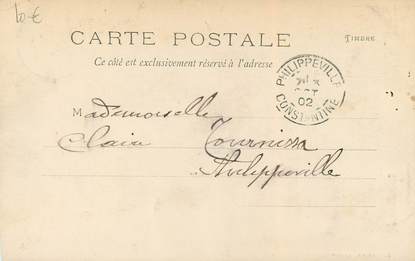 10 €
CARTE POSTALE
TIMBRE
Ce côté est exclusivement réservé à l'adresse
PHILIPPEVILLE
OCT
02
CONSTANTINE
Mademoiselle
Claire Tournissa
Philippeville